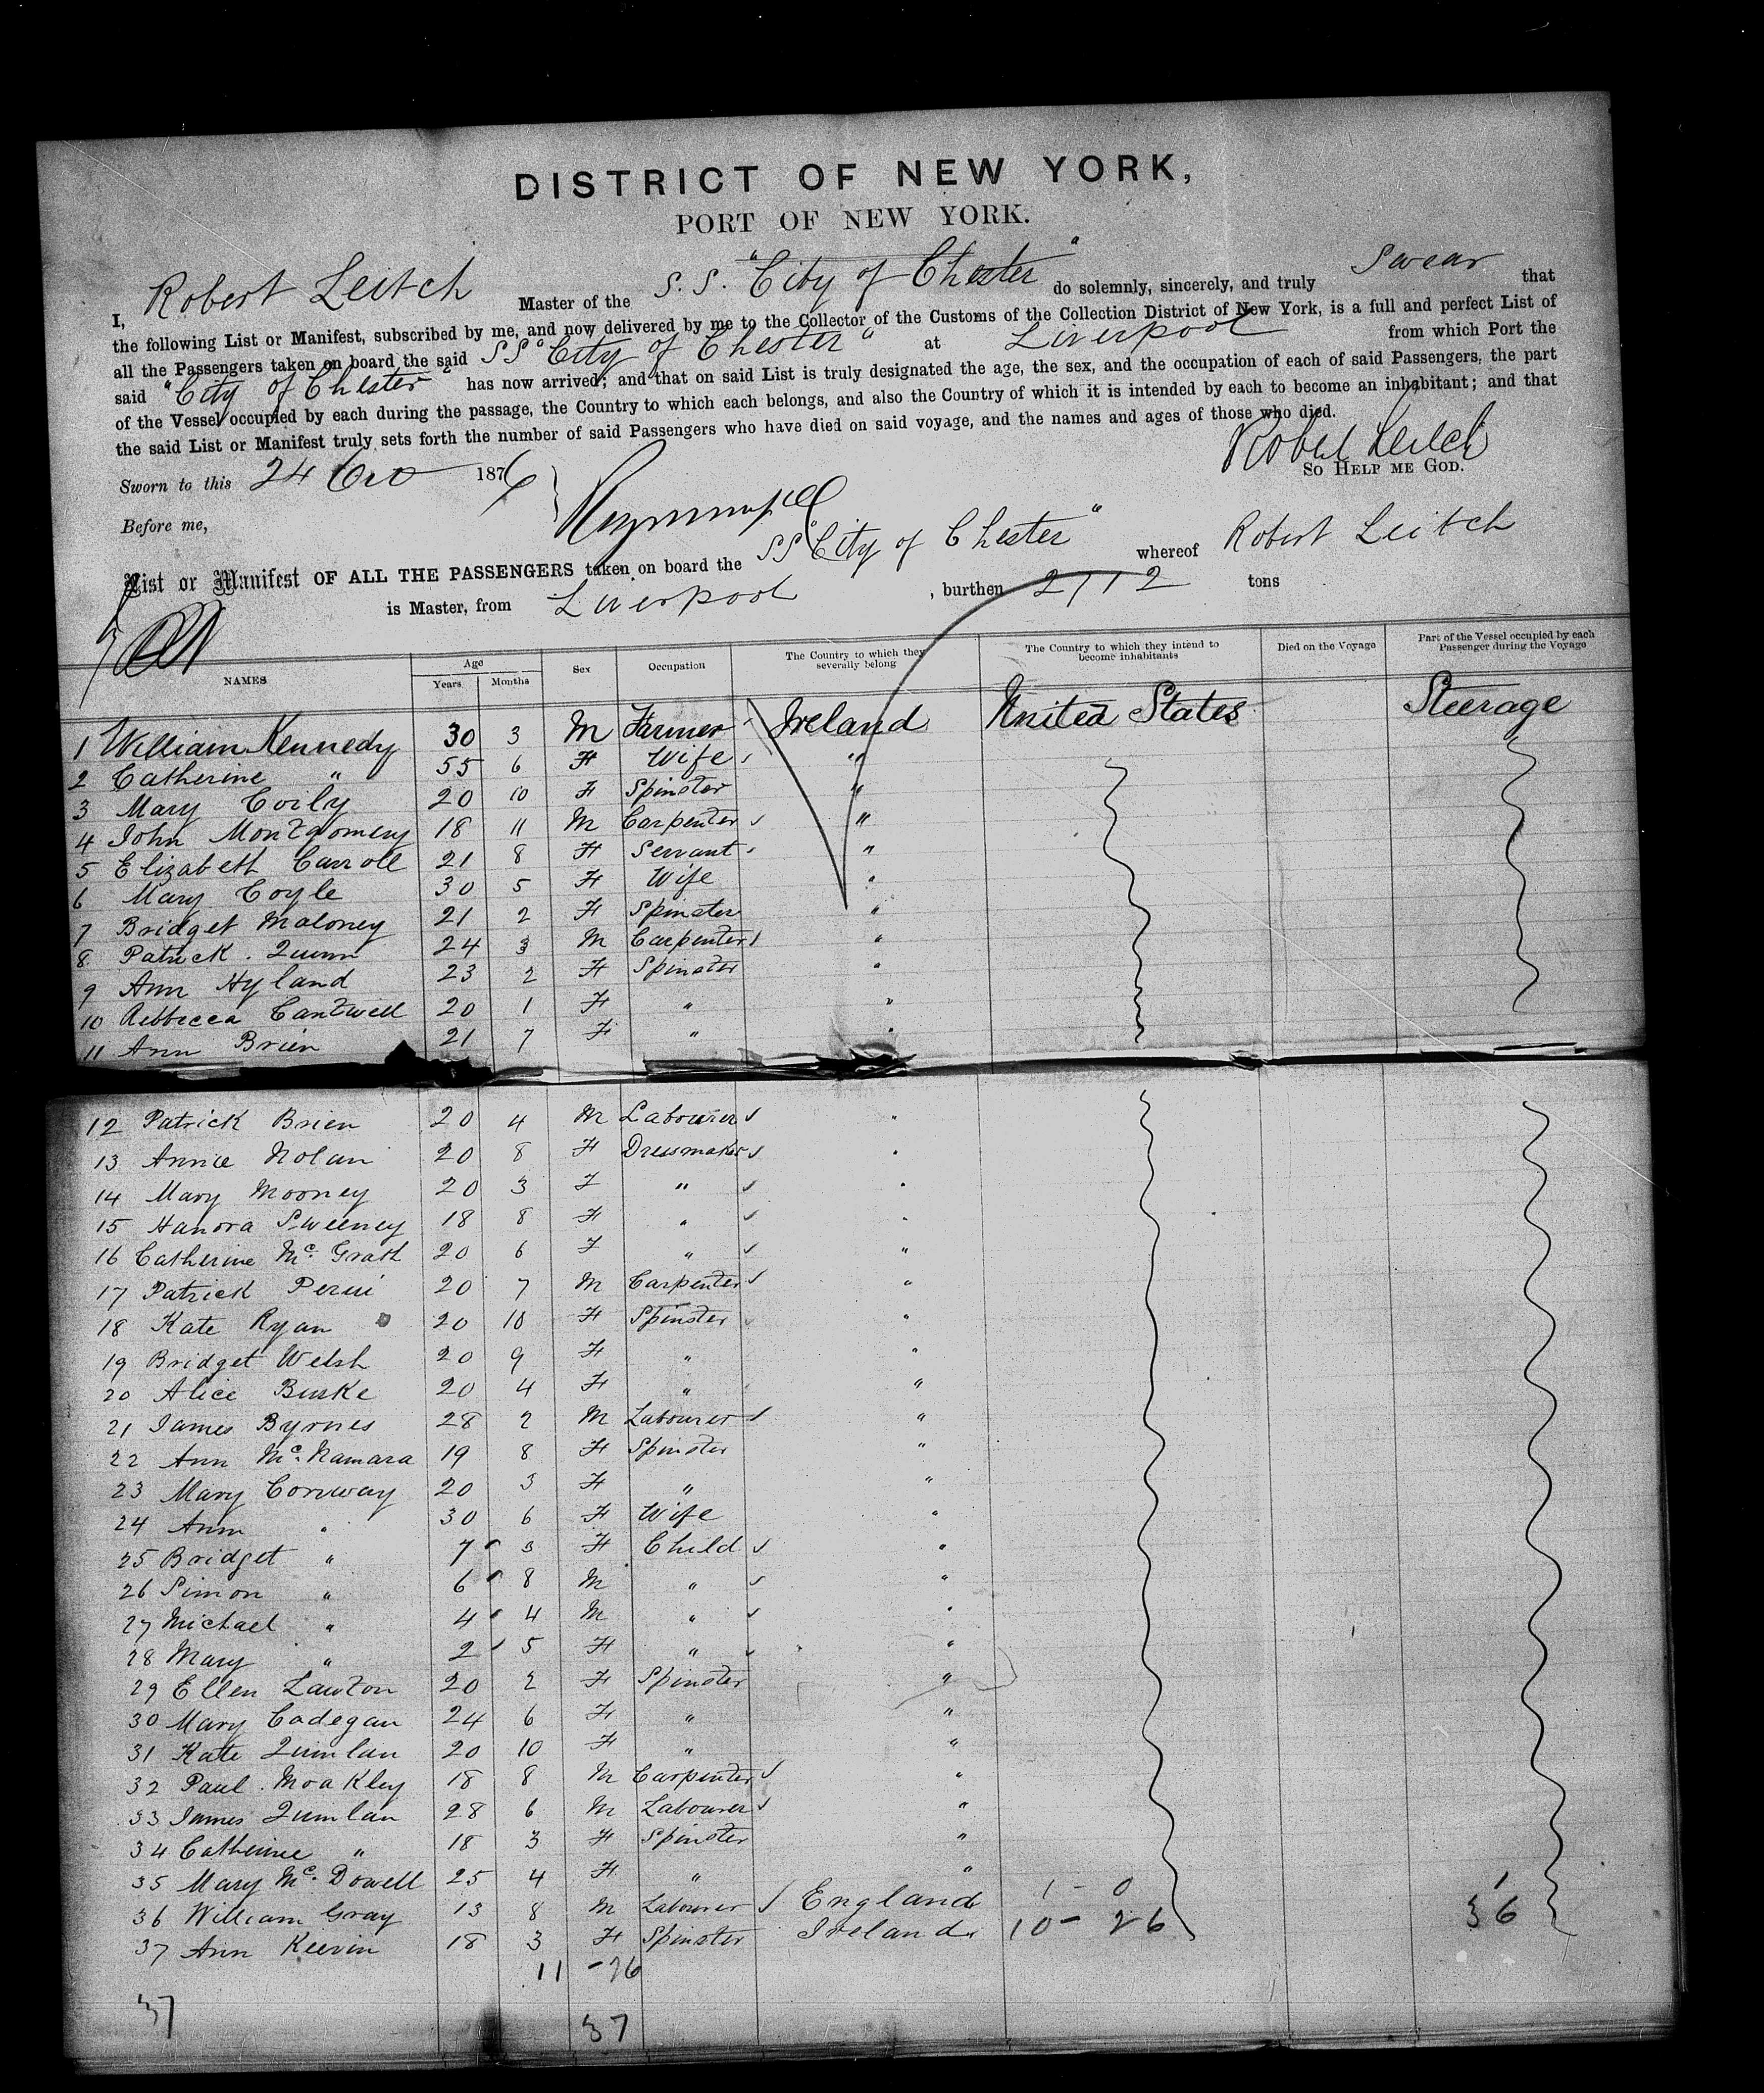 DISTRICT OF NEW YORK,
PORT OF NEW YORK.
I, Robert Leitch Master of the S.S. "City of Chester" do solemnly, sincerely, and truly Swear that
the following List or Manifest, subscribed by me, and now delivered by me to the Collector of the Customs of the Collection District of New York, is a full and perfect List of
all the Passengers taken on board the said SS "City of Chester" at Liverpool from which Port the
said "City of Chester" has now arrived; and that on said List is truly designated the age, the sex, and the occupation of each of said Passengers, the part
of the Vessel occupied by each during the passage, the Country to which each belongs, and also the Country of which it is intended by each to become an inhabitant; and that
the said List or Manifest truly sets forth the number of said Passengers who have died on said voyage, and the names and ages of those who died.
Robert Leitch
Sworn to this 24 1876 SO HELP ME GOD.
Before me,
List or Manifest OF ALL THE PASSENGERS taken on board the SS "City of Chester" whereof Robert Leitch
is Master, from Liverpool , burthen 2712 tons
NAMES Age Years Months Sex Occupation The Country to which they severally belong The Country to which they intend to become inhabitants Died on the Voyage Part of the Vessel occupied by each Passenger during the Voyage
1 William Kennedy 30 3 M Farmer Ireland United States Steerage
2 Catherine " 55 6 F Wife "
3 Mary Coily 20 10 F Spinster "
4 John Montgomery 18 11 M Carpenter "
5 Elizabeth Carroll 21 8 F Servant "
6 Mary Coyle 30 5 F Wife "
7 Bridget Maloney 21 2 F Spinster "
8 Patrick Quinn 24 3 M Carpenter "
9 Ann Hyland 23 2 F Spinster "
10 Rebbecca Cantwell 20 1 F " "
11 Ann Brien 21 7 F " "
12 Patrick Brien 20 4 M Labourer "
13 Annie Nolan 20 8 F Dressmaker "
14 Mary Mooney 20 3 F " "
15 Hanora Sweeney 18 8 F " "
16 Catherine Mc Grath 20 6 F " "
17 Patrick 20 7 M Carpenter "
18 Kate Ryan 20 10 F Spinster "
19 Bridget Welsh 20 9 F " "
20 Alice Burke 20 4 F " "
21 James Byrnes 28 2 M Labourer "
22 Ann Mc Namara 19 8 F Spinster "
23 Mary Conway 20 3 F " "
24 Ann " 30 6 F Wife "
25 Bridget " 7 3 F Child "
26 Simon " 6 8 M " "
27 Michael " 4 4 M " "
28 Mary " 2 5 F " "
29 Ellen Lawton 20 2 F Spinster "
30 Mary Cadegan 24 6 F " "
31 Kate Quinlan 20 10 F " "
32 Paul Moakley 18 8 M Carpenter "
33 James Quinlan 28 6 M Labourer "
34 Catherine " 18 3 F Spinster "
35 Mary Mc Dowell 25 4 F " "
36 William Gray 13 8 M Labourer England 1 - 0 1
37 Ann Keevin 18 3 F Spinster Ireland 10 - 26 36
11 - 26
37 37